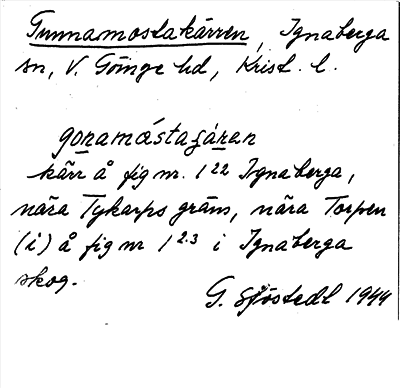 Gunnamostakärren, Ignaberga
sn, V. Göinge hd, Krist. l.
gonamǻstaʒáran
kärr å fig nr. 1 22 Ignaberga,
nära Tykarps gräns, nära Torpen
(i) å fig nr 1 2.3 i Ignaberga
skog.
G. Sjöstedt 1944